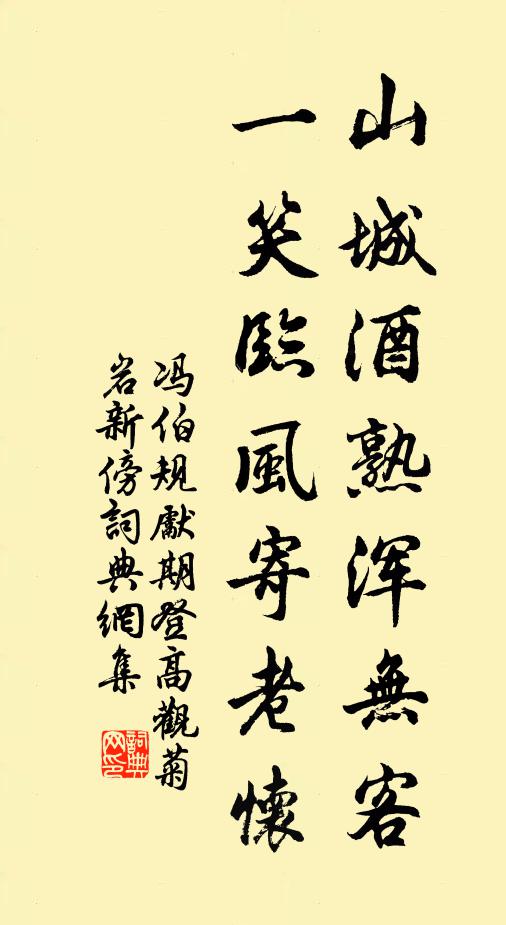 山城酒熟浑無客
一笑臨風寄老懷
冯伯规獻期登高觀菊
岩新傍詞典網集
詞典网印